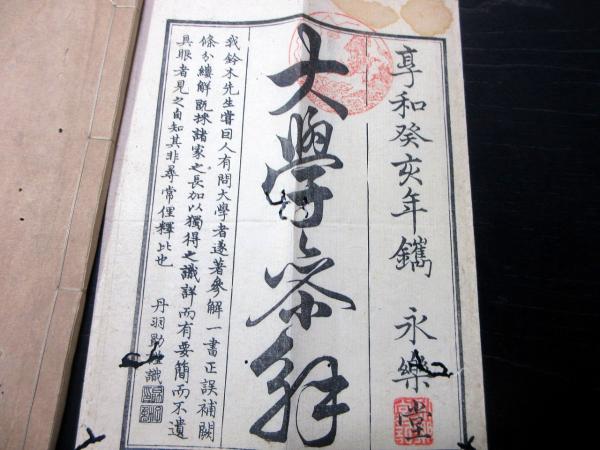 享和癸亥年鐫 永樂堂
大學參解
我鈴木先生嘗因人有問大學者遂著參解一書正誤補闕
條分縷解既採諸家之長加以獨得之識詳而有要簡而不遺
具眼者見之自知其非尋常俚釋比也
丹羽 識